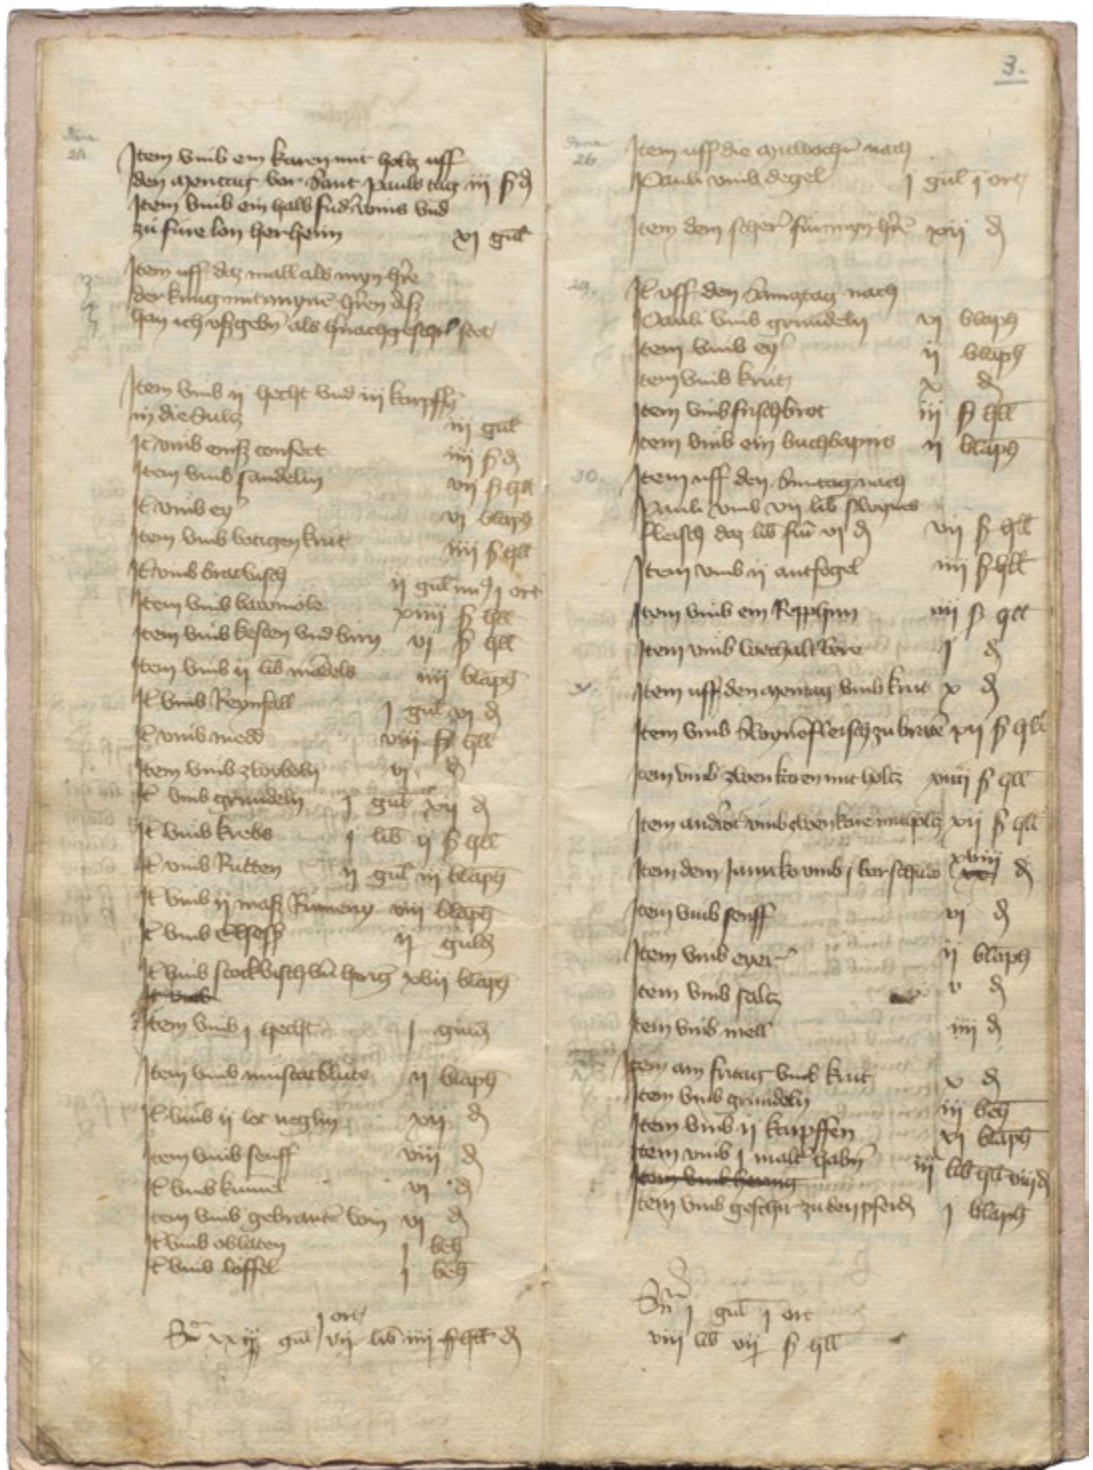 24
Item umb ein karen mit holtz uff
den mentag vor Sant Pauls tag iii ß d
Item umb ein halb fuder wins und
zu fure lon her heim xi gul
Item uff daz mall als myn h're
der kung mit mynen h'ren
han ich ußgeb'n als h'nach geschr' stet
Item umb ii hecht und iii karpffen
in die Sultz iii gul
It umb confect iiii ß d
Item umb sandelin vii ß hll
It umb ey' vi blaph
Item umb krut iiii ß hll
It umb ii gul j ort
Item umb bawmole xiiii ß hll
Item umb kesten und birn vi ß hll
Item umb ii lib mandels iiii blaph
It umb Reynfall j gul vi d
It umb medd viii ß hll
Item umb zwybeln vi d
It umb grundeln j gul xii d
It umb krebs j lib ii ß hll
It umb Rutten ii gul iii blaph
It umb ii maß Rumeny viii blaph
It umb Elseß' ii guld
It umb stockvisch und hering xvii blaph
It umb
Item umb j hecht j guld
Item umb muscatblute ii blaph
It umb ii lot neglin xii d
Item umb senff viii d
It umb kumel vi d
Item umb gebranten win vi d
It umb oblaten j beh
It umb loffel j beh
j ort
gul vii lib iiii ß hll d
3.
26
Item uff die mitwoch nach
Pauli umb degel j gul j ort
Item dem scher' fur myn h're xvii d
29.
It uff den Samstag nach
Pauli umb grundeln vi blaph
Item umb ey' ii blaph
Item umb krut x d
Item umb frisch brot iii ß hll
Item umb ein buch bapirs ii blaph
30.
Item uff den Suntag nach
Pauli umb vii lib swynes
fleisch daz lib fur vi d vii ß hll
Item umb ii antfogel iiii ß hll
Item umb ein Repphun viii ß hll
Item umb wechalter bere j d
31.
Item uff den mentag umb krut x d
Item umb Swynefleisch zu braten xii ß hll
Item umb zwen karen mit holtz xviii ß hll
Item umb zwen karen xii ß hll
Item dem umb j par schuhe xviii d
Item umb senff vi d
Item umb eyer ii blaph
Item umb saltz v d
Item umb mell iiii d
Item am fritag umb krut x d
Item umb grundeln iii beh
Item umb ii karpffen xi blaph
Item umb j malter habern iii lib hll viii d
Item umb hering
Item umb geschir zu den pferden j blaph
j gul j ort
viii lib vii ß hll